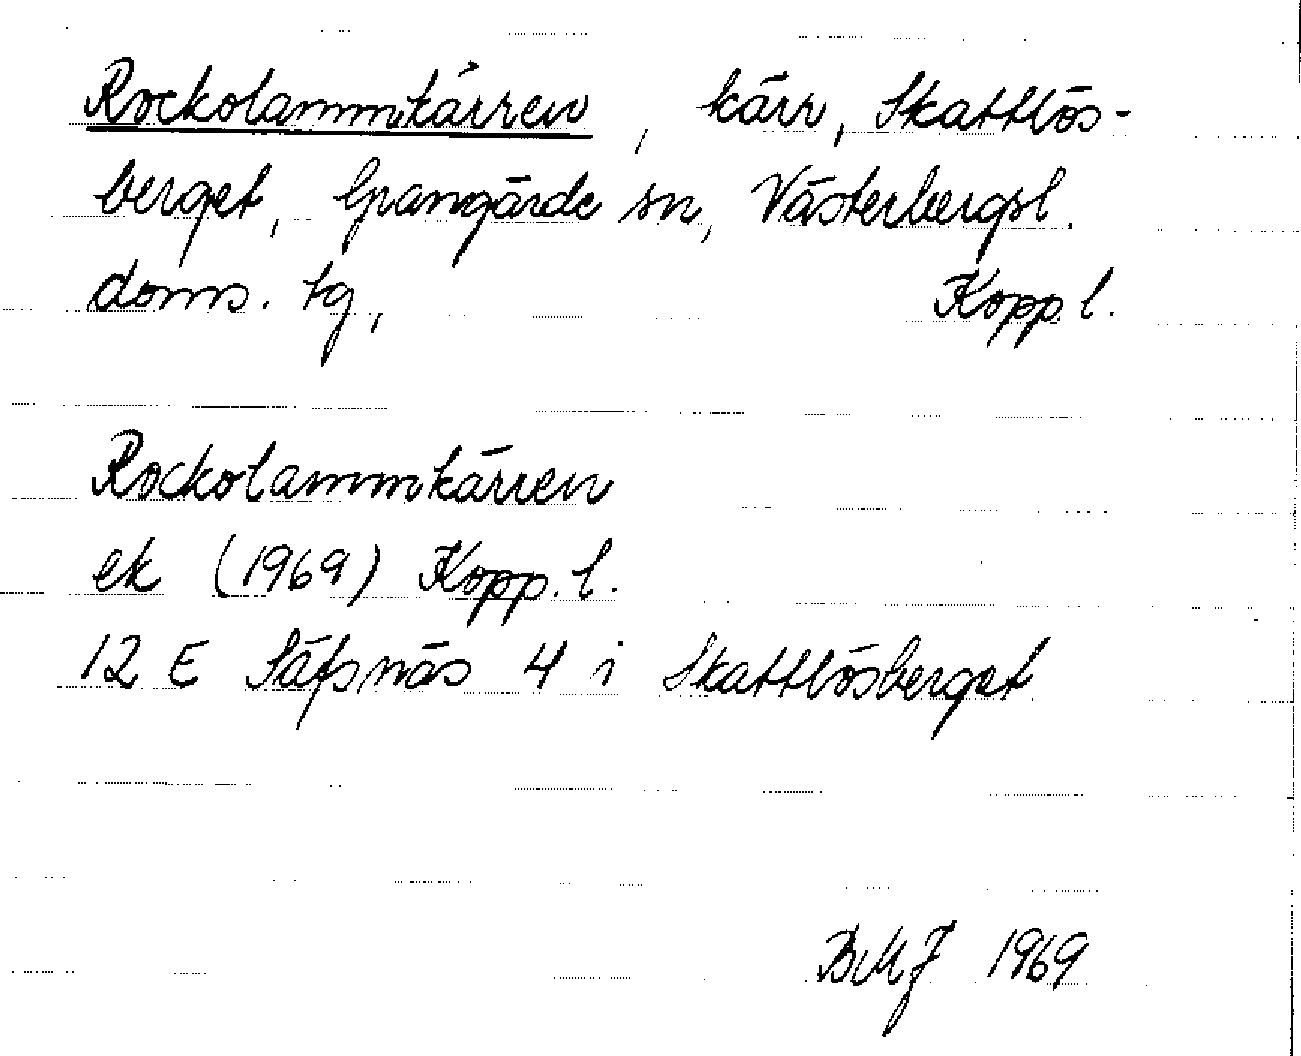 Rockolammkärren, kärr, Skattlös-
berget, Grangärde sn, Västerbergsl.
doms. tg, Kopp. l.
Rockolammkärren
ek (1969) Kopp. l.
12 E Säfsnäs 4 i Skattlösberget
BMJ 1969